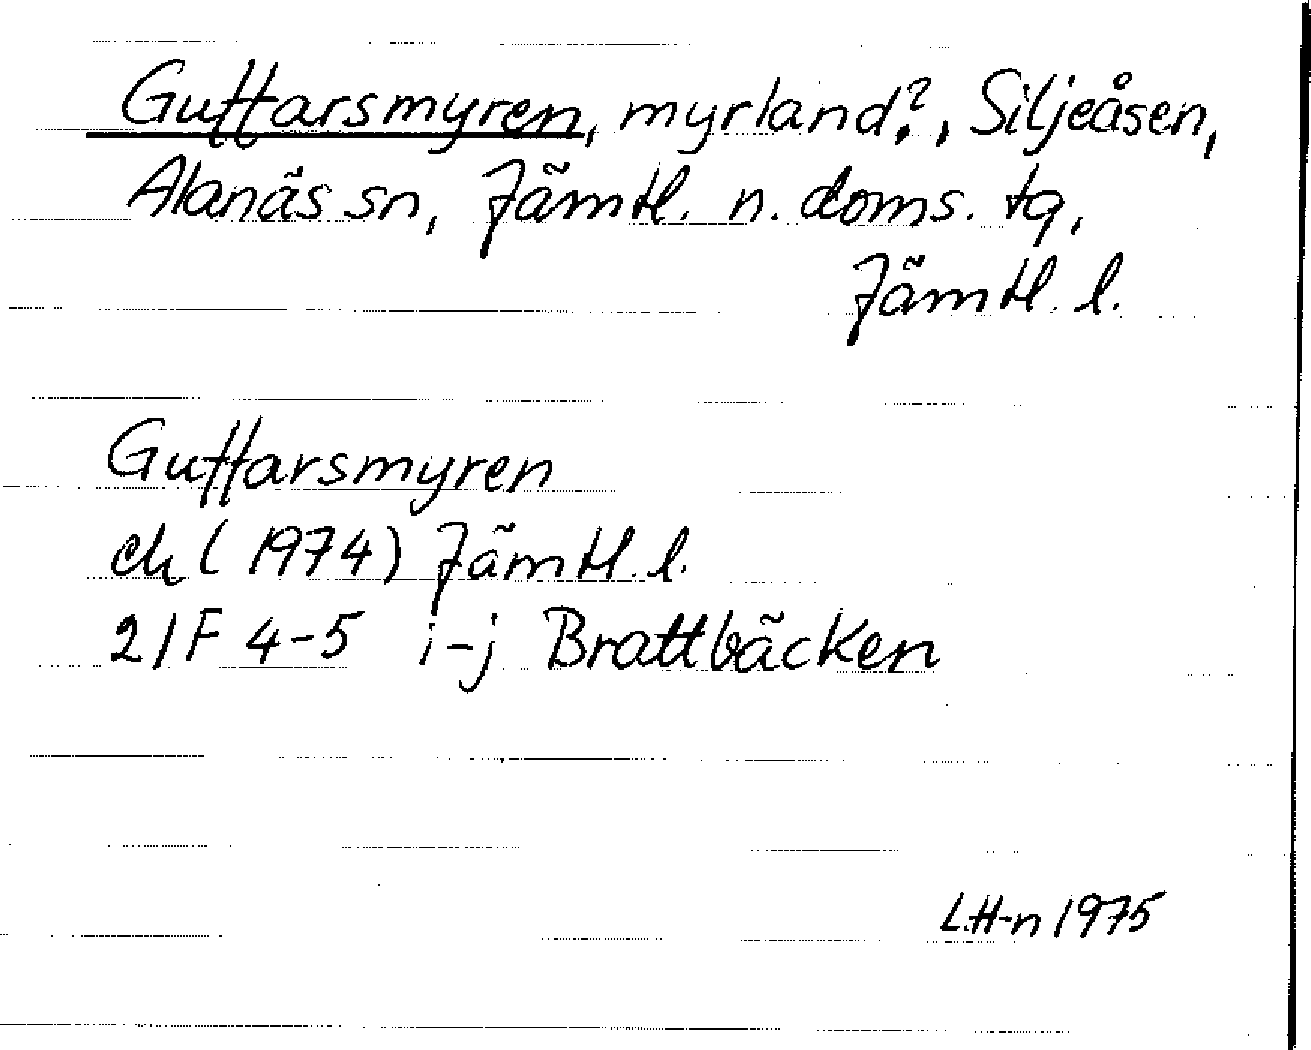 Guffarsmyren, myrland?, Siljeåsen,
Alanäs sn, Jämtl. n. doms. tg,
Jämtl. l.
Guffarsmyren
ek (1974) Jämtl. l.
21F 4-5 i-j Brattbäcken
L.H-n 1975